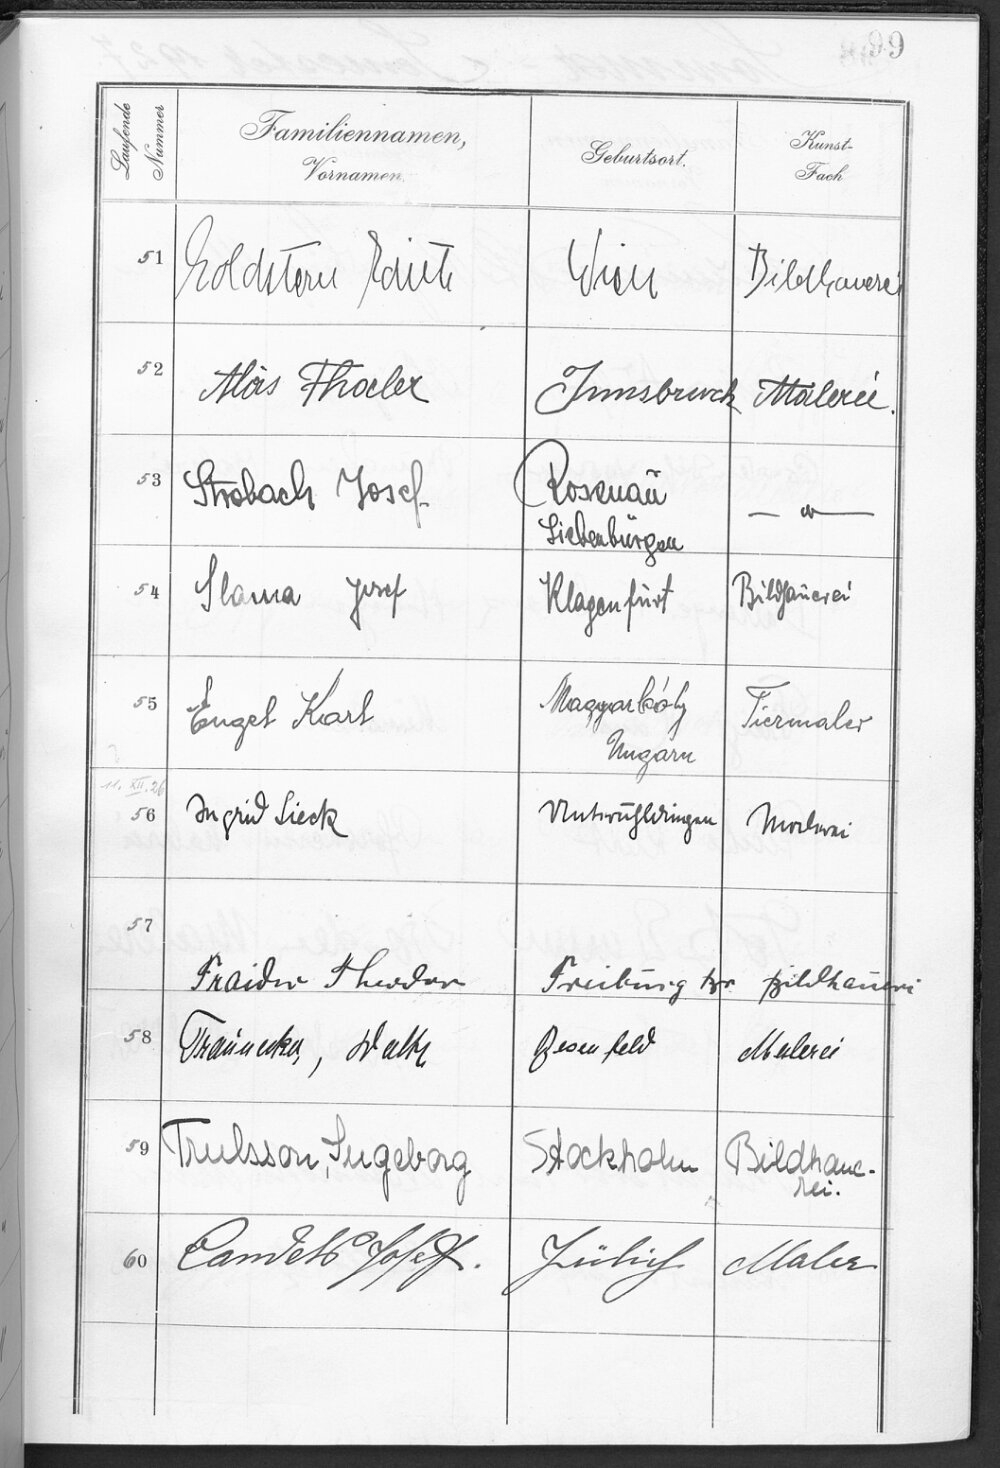 99
Laufende Nummer
Familiennamen, Vornamen.
Geburtsort.
Kunst-Fach
51 Goldstern Edith Wien Bildhauerei
52 Alois Thaler Innsbruck Malerei.
53 Strobach Josef Rosenau Siebenbürgen — " —
54 Slama Josef Klagenfurt Bildhauerei
55 Engel Karl Magyarbóly Ungarn Tiermaler
11. XII. 26
56 Ingrid Sieck Unteruhldingen Malerei
57 Theodor Freiburg Br Bildhauerei
58 Walter Besenfeld Malerei
59 Trulsson, Ingeborg Stockholm Bildhaue-rei.
60 Candels Josef. Jülich Maler